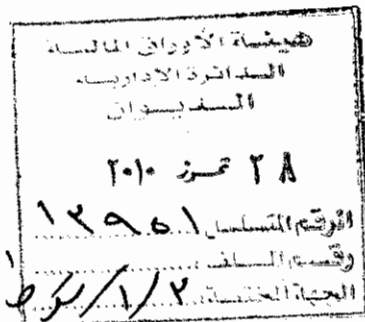 هيئة الأوراق المالية
الدائرة الإدارية
الديوان
٢٨ تموز ٢٠١٠
الرقم المتسلسل ١٢٩٥١
رقم الملف
الجهة المختصة ٢/١/